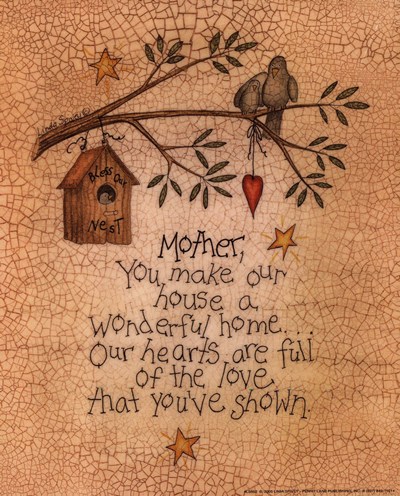 Linda Spivey
Bless Our
Nest
Mother,
You make our
house a
wonderful home...
Our hearts are full
of the love
that you've shown.